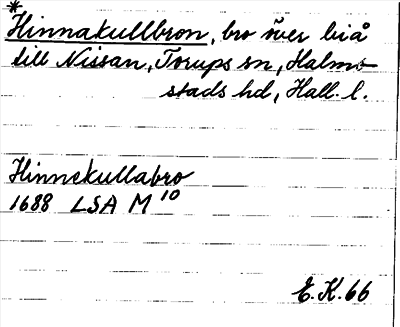 *
Hinnakullbron, bro över biå
till Nissan, Torups sn, Halm-
stads hd, Hall. l.
Hinnekullabro
1688 LSA M 10
E.K. 66